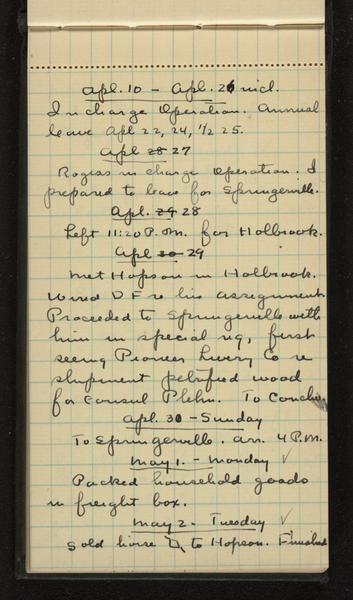 Apl. 10 - Apl. 26 incl.
In charge Operation. Annual
leave Apl 22, 24, 1/2 25.
Apl 28 27
Rogers in charge Operation. I
prepared to leave for Springerville.
Apl. 29 28
Left 11:20 P.M. for Holbrook.
Apl 30 29
Met Hopson in Holbrook.
Wired D F re his assignment
Proceeded to Springerville with
him in special rig, first
seeing Pioneer Livery Co re
shipment petrified wood
for Consul Plehn. To Concho.
Apl. 30 - Sunday
To Springerville. arr. 4 P.M.
May 1. - Monday ✓
Packed household goods
in freight box.
May 2 - Tuesday ✓
Sold horse to Hopson. Finished